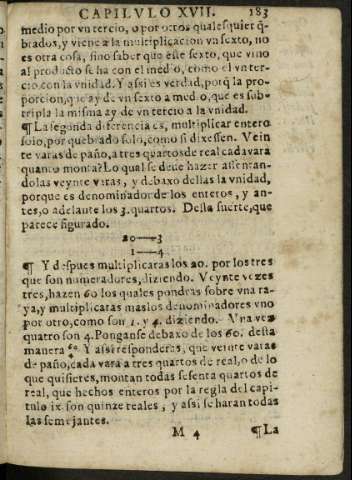 CAPILVLO XVII. 183
medio por vn tercio, o por otros quales quier q̃-
brados, y viene a la multiplicacion vn sexto, no
es otra cosa, sino saber que este sexto, que vino
al producto se ha con el medio, como el vn ter-
cio, con la vnidad. Y assi es verdad, porq̃ la pro-
porcion, que ay de vn sexto a medio, que es sub-
tripla la misma ay de vn tercio a la vnidad.
¶ La segunda diferencia es, multiplicar entero
solo, por quebrado solo, como si dixessen. Vein
te varas de paño, a tres quartos de real cada vara
quanto monta? Lo qual se deue hazer assentan-
dolas veynte varas, y debaxo dellas la vnidad,
porque es denominador de los enteros, y an-
tes, o adelante los 3. quartos. Desta suerte, que
parece figurado.
20—3
1—4
¶ Y despues multiplicaras los 20. por los tres
que son numeradores, diziendo. Veynte vezes
tres, hazen 60 los quales pondras sobre vna ra-
ya, y multiplicaras mas los denominadores vno
por otro, como son 1. y 4. diziendo. Vna vez
quatro son 4. Ponganse debaxo de los 60. desta
manera 60/4 Y assi responderas, que veinte varas
de paño, cada vara a tres quartos de real, o de lo
que quisieres, montan todas sesenta quartos de
real, que hechos enteros por la regla del capi-
tulo ix. son quinze reales, y assi se haran todas
las semejantes.
M 4 ¶ La